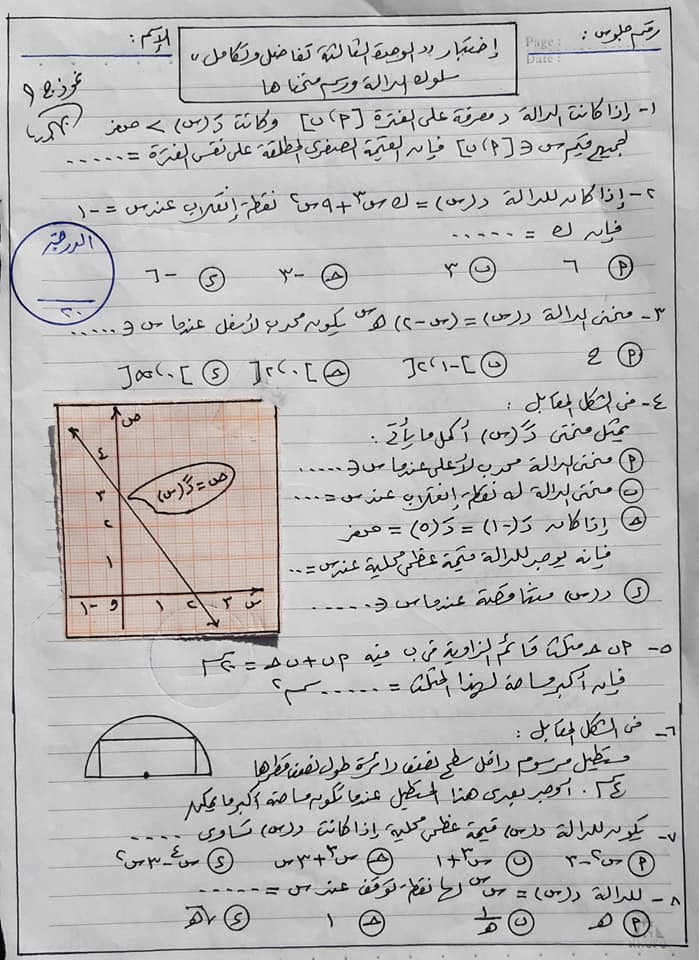 رقم جلوس :
Page :
Date :
الإسم :
إختبار " الوحدة الثالثة تفاضل وتكامل "
سلوك الدالة ورسم منحناها
نموذج ٩
١- إذا كانت الدالة د معرفة على الفترة [ ٢ ، ب ] وكانت دَ(س) > صفر
لجميع قيم س ∈ [ ٢ ، ب ] فإن القيمة الصغرى المطلقة على نفس الفترة = .....
٢- إذا كان للدالة د(س) = ك س٣ + ٩ س٢ نقطة إنقلاب عند س = -١
فإن ك = .....
أ ٦ ب ٣ ج -٣ د -٦
الدرجة
٢٠
٣- منحنى الدالة د(س) = (س - ٢) هـ س يكون محدب لأسفل عندما س ∈ .....
أ ح ب ]-١ ، ٢[ ج ]٠ ، ٢[ د ]٠ ، ∞[
٤- فى الشكل المقابل :
يمثل منحنى دَّ(س) أكمل ما يأتى :
أ منحنى الدالة محدب لأعلى عندما س ∈ .....
ب منحنى الدالة له نقطة إنقلاب عند س = ...
ج إذا كان دَ(-١) = دَ(٥) = صفر
فإنه يوجد للدالة قيمة عظمى محلية عند س = ..
د د(س) متناقصة عندما س ∈ .....
ص
٤
٣
٢
١
ص = دَّ(س)
-١ و ١ ٢ ٣ س
٥- أ ب ج مثلث قائم الزاوية فى ب فيه أ ب + ب ج = ٢٠ سم
فإن أكبر مساحة لهذا المثلث = ..... سم٢
٦- فى الشكل المقابل :
مستطيل مرسوم داخل سطح نصف دائرة طول نصف قطرها
٤ سم . أوجد بعدى هذا المستطيل عندما تكون مساحته أكبر ما يمكن
٧- يكون للدالة د(س) قيمة عظمى محلية إذا كانت د(س) تساوى ....
أ س٢ - ٣ ب س٣ + ١ ج س٣ + ٣ س د س٤ - ٣ س٢
٨- للدالة د(س) = س س لها نقطة توقف عند س = .....
أ هـ ب ١/هـ ج ١ د √هـ